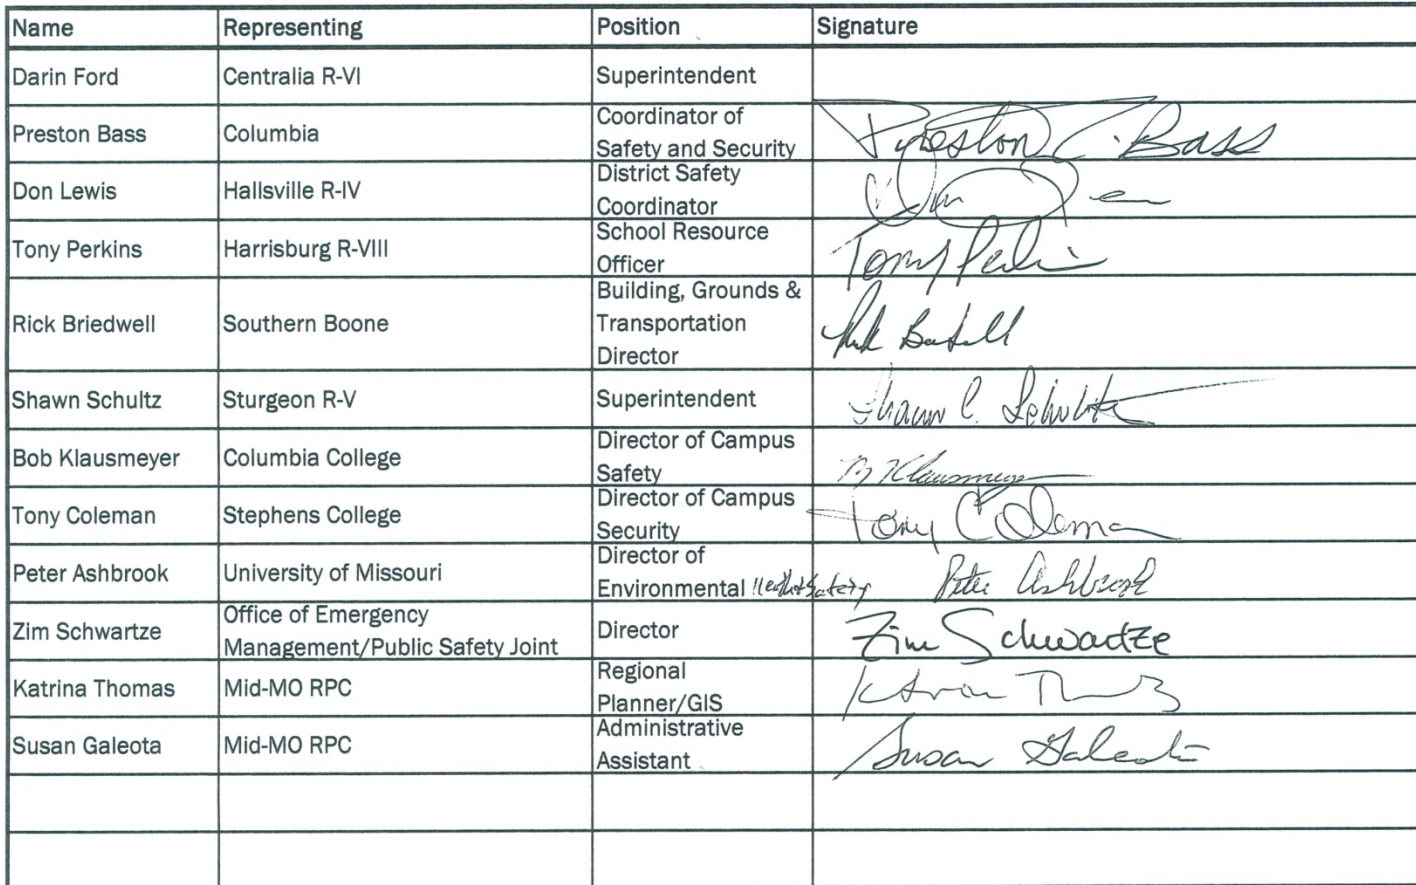 Name Representing Position Signature
Darin Ford Centralia R-VI Superintendent
Preston Bass Columbia Coordinator of
Safety and Security Preston C. Bass
Don Lewis Hallsville R-IV District Safety
Coordinator
Tony Perkins Harrisburg R-VIII School Resource
Officer Tony Perkins
Rick Briedwell Southern Boone Building, Grounds &
Transportation
Director
Shawn Schultz Sturgeon R-V Superintendent Shawn C. Schultz
Bob Klausmeyer Columbia College Director of Campus
Safety B Klausmeyer
Tony Coleman Stephens College Director of Campus
Security Tony Coleman
Peter Ashbrook University of Missouri Director of
Environmental Health & Safety Peter Ashbrook
Zim Schwartze Office of Emergency
Management/Public Safety Joint Director Zim Schwartze
Katrina Thomas Mid-MO RPC Regional
Planner/GIS
Susan Galeota Mid-MO RPC Administrative
Assistant Susan Galeota